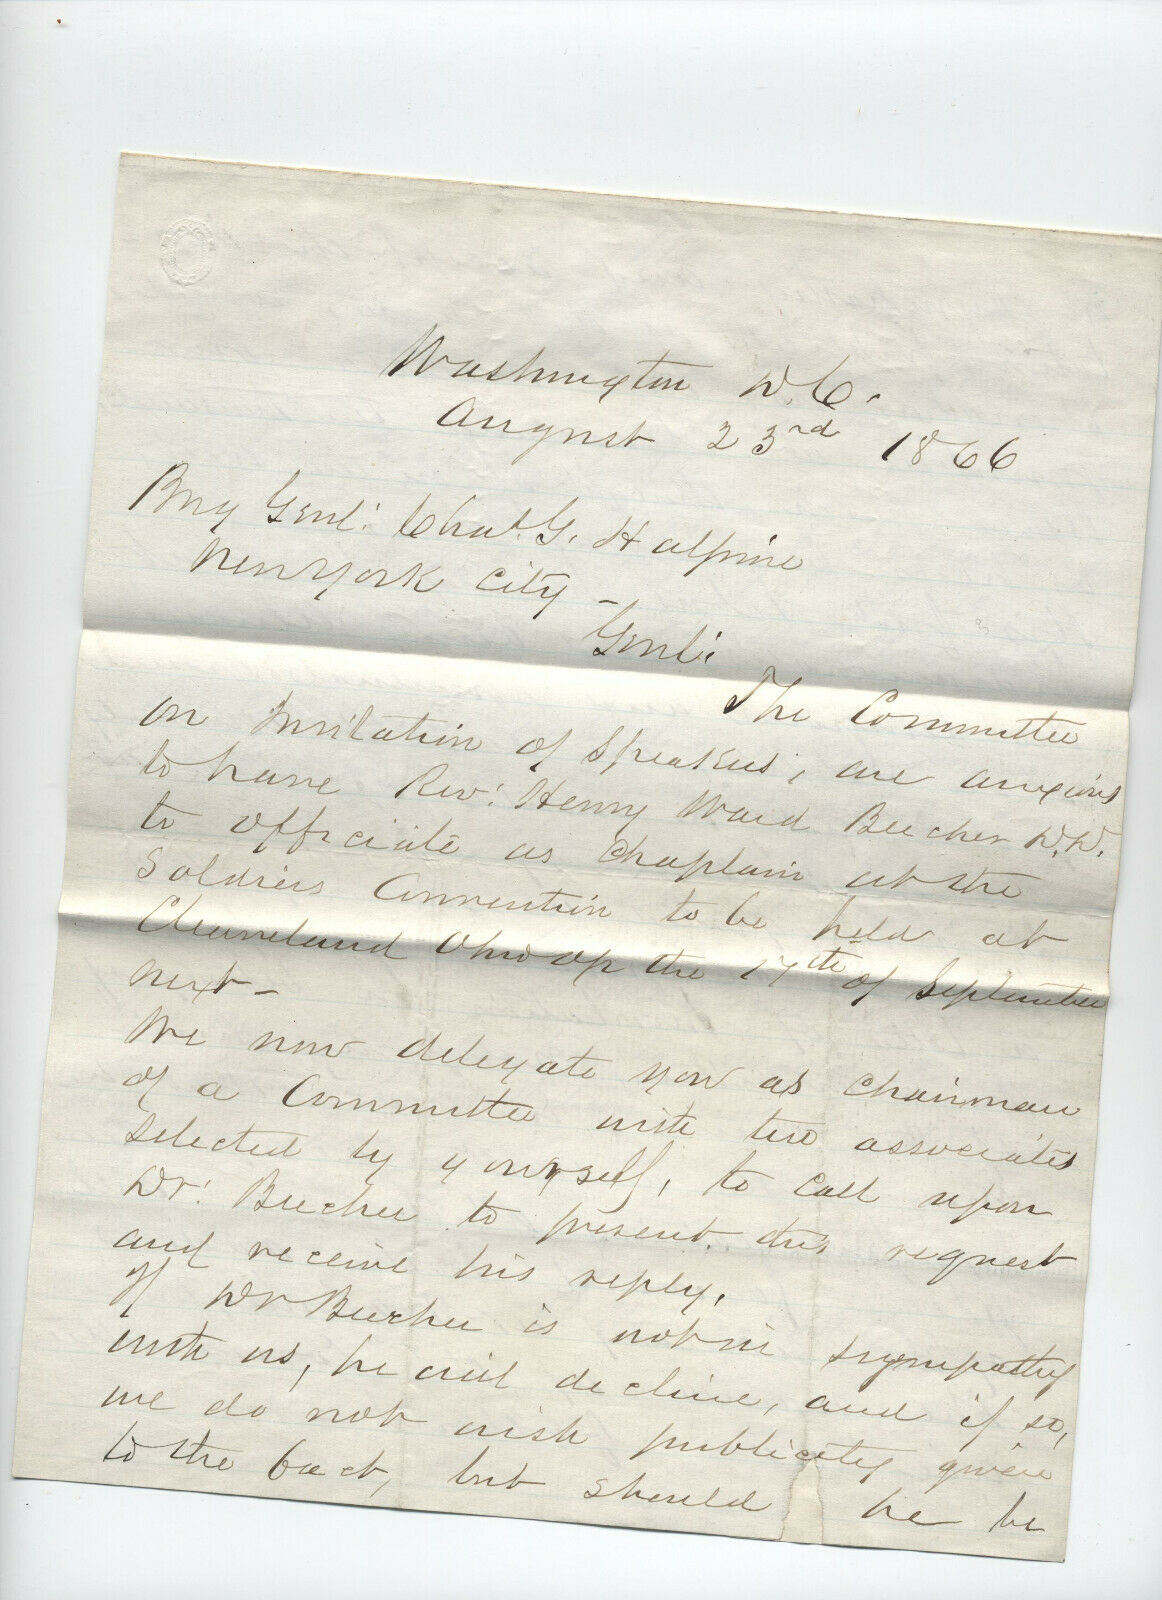 Washington D.C.
August 23rd 1866
Brig Genl: Chas. G. Halpine
New York City -
Genl:
The Committee
on Invitation of Speakers, are anxious
to have Rev: Henry Ward Beecher D.D.
to officiate as Chaplain at the
Soldiers Convention to be held at
Cleaveland Ohio on the 17th of September
next -
We now delegate you as chairman
of a Committee with two associates
selected by yourself, to call upon
Dr: Beecher to present this request
and receive his reply.
If Dr Beecher is not in sympathy
with us, he will decline, and if so,
we do not wish publicity given
to the fact, but should he be